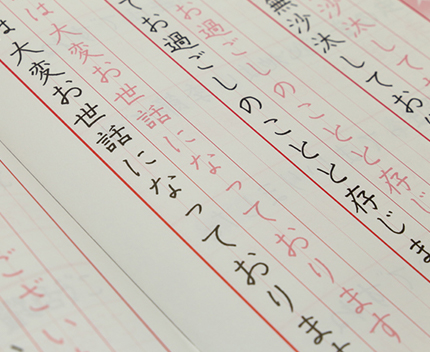 沙汰して
無沙汰してお
お過ごしのことと存じ
てお過ごしのことと存じま
は大変お世話になっております
は大変お世話になっておりま
ござい